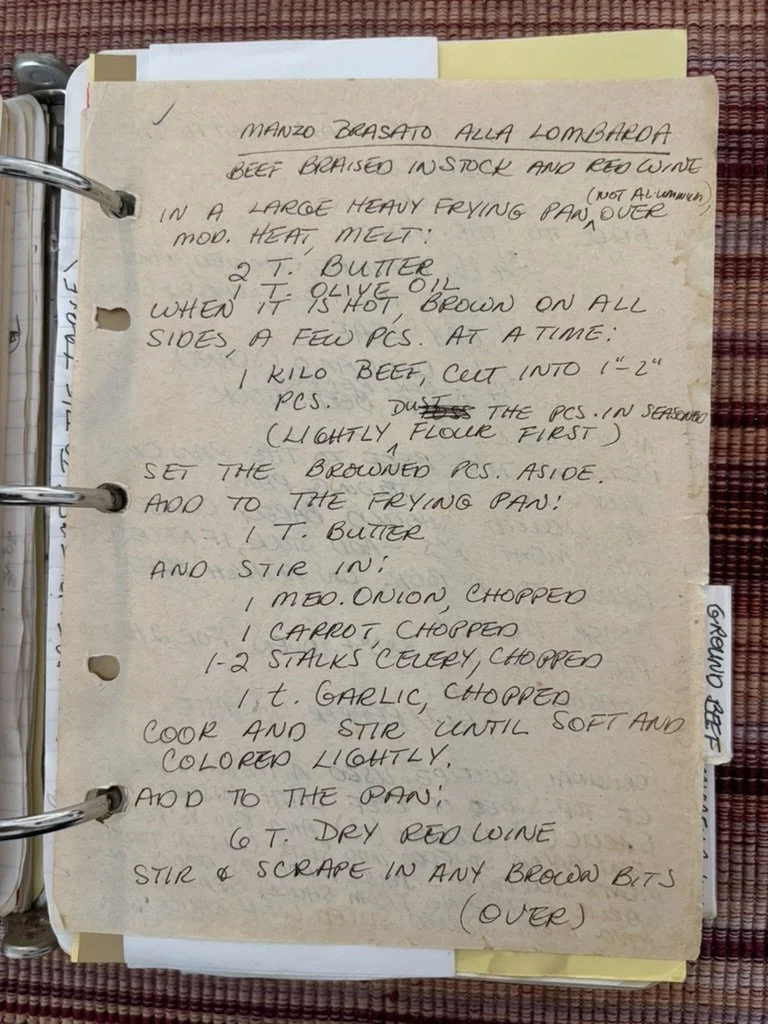 MANZO BRASATO ALLA LOMBARDA
BEEF BRAISED IN STOCK AND RED WINE
(NOT ALUMINUM)
IN A LARGE HEAVY FRYING PAN, OVER
MOD. HEAT, MELT:
2 T. BUTTER
1 T. OLIVE OIL
WHEN IT IS HOT, BROWN ON ALL
SIDES, A FEW PCS. AT A TIME:
1 KILO BEEF, CUT INTO 1"-2"
PCS. DUST THE PCS. IN SEASONED
(LIGHTLY FLOUR FIRST)
SET THE BROWNED PCS. ASIDE.
ADD TO THE FRYING PAN:
1 T. BUTTER
AND STIR IN:
1 MED. ONION, CHOPPED
1 CARROT, CHOPPED
1-2 STALKS CELERY, CHOPPED
1 t. GARLIC, CHOPPED
COOK AND STIR UNTIL SOFT AND
COLORED LIGHTLY.
ADD TO THE PAN:
6 T. DRY RED WINE
STIR & SCRAPE IN ANY BROWN BITS
(OVER)
GROUND BEEF